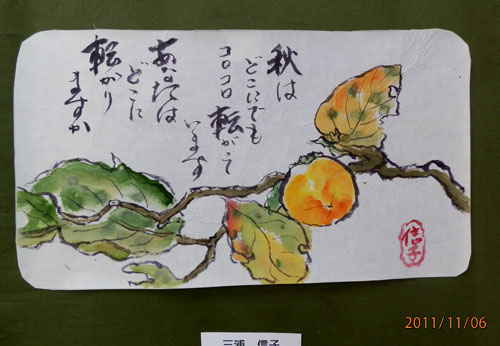 秋は
どこにでも
コロコロ転がって
います
あなたは
どこに
転がり
ますか
信子
三浦 信子
2011/11/06